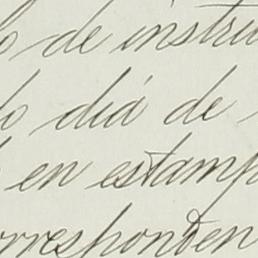 o de instru
do diá de
en estamp
orresponden